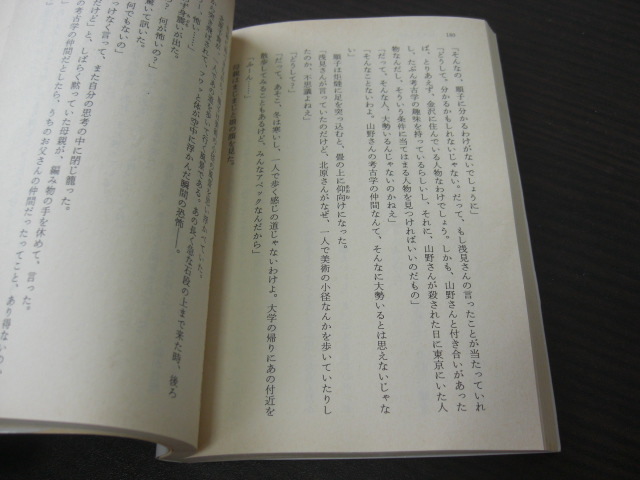 180
「そんなの、順子に分かるわけがないでしょうに」
「どうして、分かるかもしれないじゃない。だって、もし浅見さんの言ったことが当たっていれ
ば、とりあえず、金沢に住んでいる人物なわけでしょう。しかも、山野さんと付き合いがあった
し、たぶん考古学の趣味を持っているらしいし、それに、山野さんが殺された日に東京にいた人
物なんだし、そういう条件に当てはまる人物を見つければいいのだもの」
「だって、そんな人、大勢いるんじゃないのかねえ」
「そんなことないわよ。山野さんの考古学の仲間なんて、そんなに大勢いるとは思えないじゃな
い」
順子は炬燵に足を突っ込むと、畳の上に仰向けになった。
「浅見さんが言っていたのだけど、北原さんがなぜ、一人で美術の小径なんかを歩いていたりし
たのか、不思議よねえ」
「どうして？」
「だって、あそこ、冬は寒いし、一人で歩く感じの道じゃないわけよ。大学の帰りにあの付近を
散歩してみることもあるけど、みんなアベックなんだから」
「ふーん……」
母親はまじまじと娘の顔を見た。
フワッと体が空中に浮かんだ瞬間の恐怖――。
ず震いが出た。
何が怖いの？」
驚いて訊いた。
何でもないの」
っけなく言って、また自分の思考の中に閉じ籠った。
だけど」と、しばらく黙っていた母親が、編み物の手を休めて、言った。
の考古学の仲間だとしたら、うちのお父さんの仲間だったってこと、あり得ないの